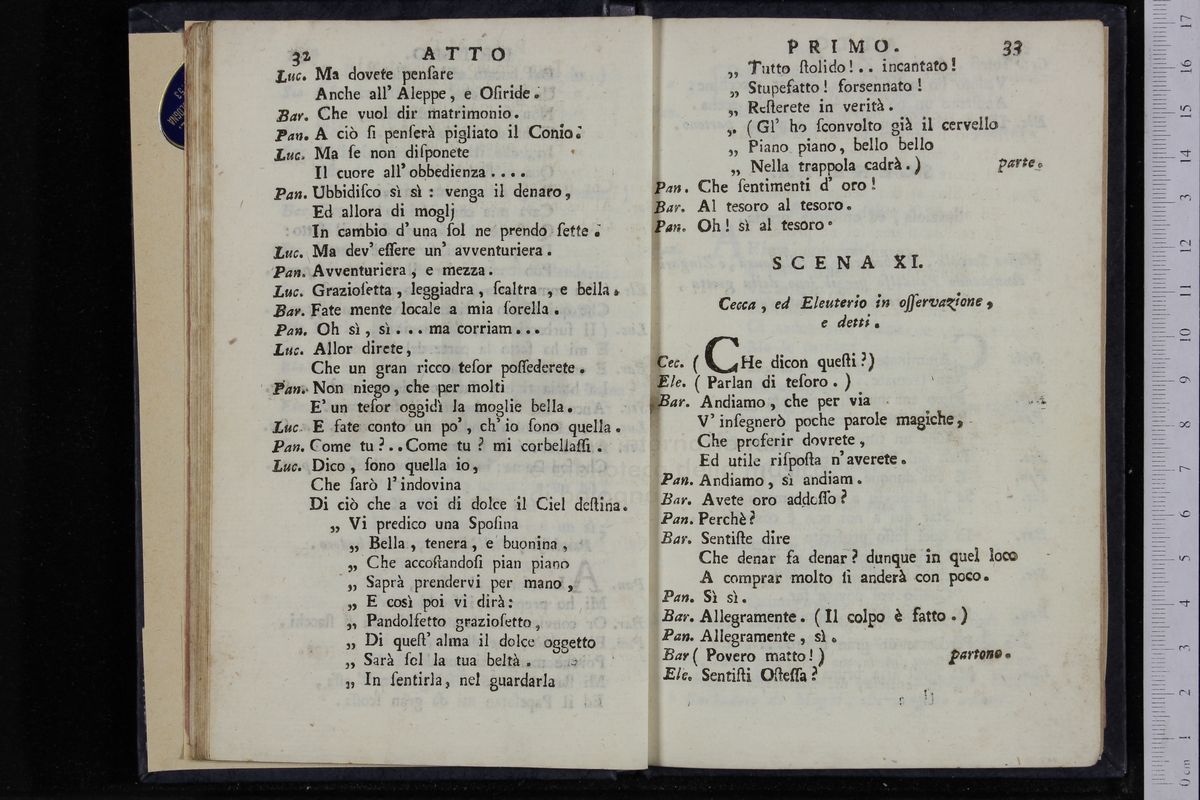 32 ATTO
Luc. Ma dovete penſare
Anche all' Aleppe, e Oſiride.
Bar. Che vuol dir matrimonio.
Pan. A ciò ſi penſerà pigliato il Conio.
Luc. Ma ſe non diſponete
Il cuore all' obbedienza....
Pan. Ubbidiſco sì sì: venga il denaro,
Ed allora di moglj
In cambio d'una ſol ne prendo ſette.
Luc. Ma dev' eſſere un' avventuriera.
Pan. Avventuriera, e mezza.
Luc. Grazioſetta, leggiadra, ſcaltra, e bella.
Bar. Fate mente locale a mia ſorella.
Pan. Oh sì, sì... ma corriam...
Luc. Allor direte,
Che un gran ricco teſor poſſederete.
Pan. Non niego, che per molti
E' un teſor oggidì la moglie bella.
Luc. E fate conto un po', ch'io ſono quella.
Pan. Come tu?..Come tu? mi corbellaſſi.
Luc. Dico, ſono quella io,
Che ſarò l'indovina
Di ciò che a voi di dolce il Ciel deſtina.
„ Vi predico una Spoſina
„ Bella, tenera, e buonina,
„ Che accoſtandoſi pian piano
„ Saprà prendervi per mano,
„ E così poi vi dirà:
„ Pandolfetto grazioſetto,
„ Di queſt' alma il dolce oggetto
„ Sarà ſol la tua beltà.
„ In ſentirla, nel guardarla
PRIMO. 33
„ Tutto ſtolido!.. incantato!
„ Stupefatto! forsennato!
„ Reſterete in verità.
„ (Gl' ho ſconvolto già il cervello
„ Piano piano, bello bello
„ Nella trappola cadrà.) parte.
Pan. Che ſentimenti d' oro!
Bar. Al tesoro al tesoro.
Pan. Oh! sì al tesoro.
SCENA XI.
Cecca, ed Eleuterio in oſſervazione,
e detti.
Cec. (CHe dicon queſti?)
Ele. (Parlan di teſoro.)
Bar. Andiamo, che per via
V' inſegnerò poche parole magiche,
Che proferir dovrete,
Ed utile riſpoſta n'averete.
Pan. Andiamo, sì andiam.
Bar. Avete oro addeſſo?
Pan. Perchè?
Bar. Sentiſte dire
Che denar fa denar? dunque in quel loco
A comprar molto ſi anderà con poco.
Pan. Sì sì.
Bar. Allegramente. (Il colpo è fatto.)
Pan. Allegramente, sì.
Bar (Povero matto!) partono.
Ele. Sentiſti Oſteſſa?